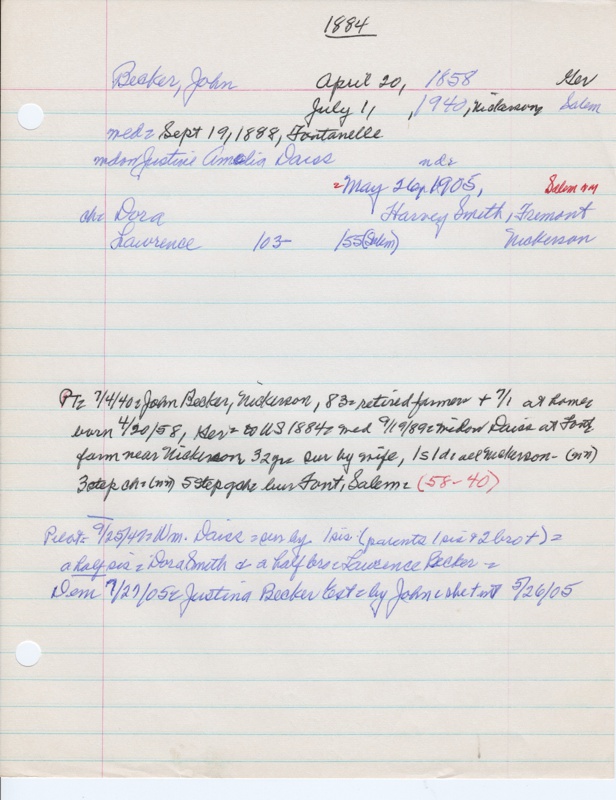 1884
Becker, John April 20, 1858 Ger
July 1, , 1940, Nickerson, Salem
med= Sept 19, 1888, Fontanelle
wdow Justine Amelia Daiss ndr
= May 26, 1905, Salem
ch= Dora Harvey Smith, Fremont
Lawrence 103- 155 (Salem) Nickerson
PT= 7/4/40= John Becker, Nickerson, 83= retired farmer + 7/1 at home=
born 4/20/58, Ger= to US 1884= med 9/19/89= widow Daiss at Font=
farm near Nickerson 32 yr= sur by wife, 1s 1d= all Nickerson- (nn)
3 step ch= (nn) 5 step gch= bur Font, Salem= (58-40)
Pilot= 9/25/47= Wm. Daiss= sur by 1sis (parents 1sis & 2bro +)=
a half sis= Dora Smith & a half bro= Lawrence Becker=
Dem 7/27/05= Justina Becker Est= by John= she + int 5/26/05